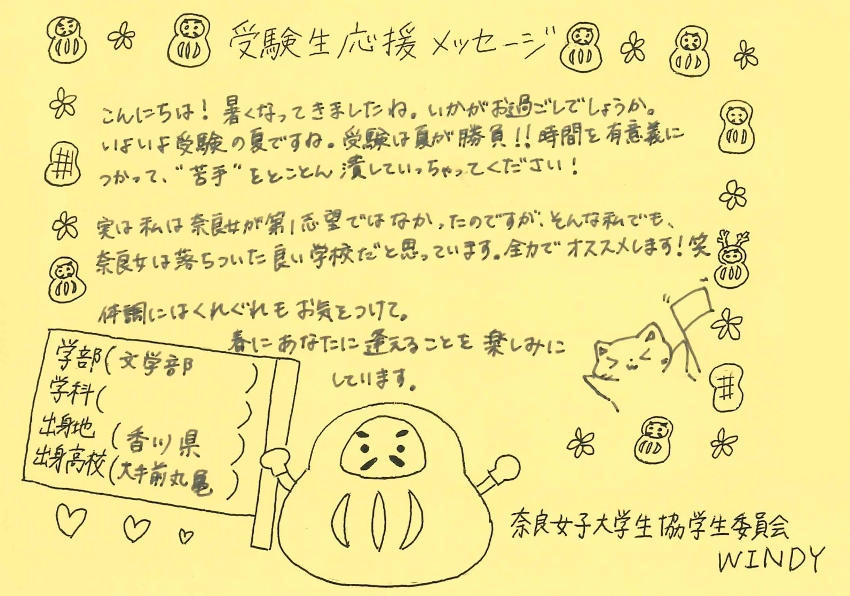 受験生応援メッセージ
こんにちは！暑くなってきましたね。いかがお過ごしでしょうか。
いよいよ受験の夏ですね。受験は夏が勝負！！時間を有意義に
つかって、“苦手”をとことん潰していっちゃってください！
実は私は奈良女が第1志望ではなかったのですが、そんな私でも、
奈良女は落ちついた良い学校だと思っています。全力でオススメします！笑
体調にはくれぐれもお気をつけて。
春にあなたに逢えることを楽しみに
しています。
学部（文学部）
学科（　）
出身地（香川県）
出身高校（大手前丸亀）
奈良女子大学生協学生委員会
WINDY